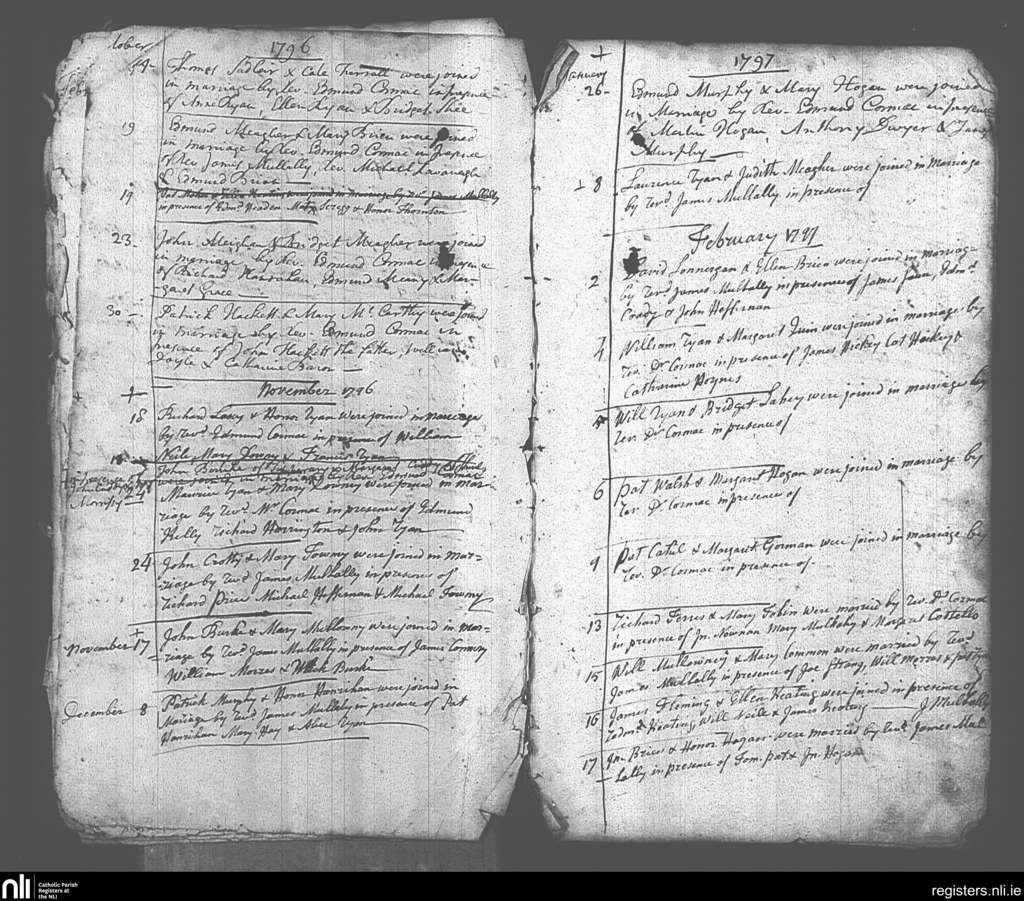 1796
14
Thomas Sadleir & Cate were joined
in marriage by Rev. Edmund Cormac in presence
of Anne Ryan, Ellen Ryan & Bridget Shee
19
Edmund Meagher & Mary Brien were joined
in marriage by Rev. Edmund Cormac in presence
of Rev James Mullally, Rev. Michael Kavanagh
& Edmund Brien
19
in presence of Edmd Headen Mary & Honor Thornton
23
John & Bridget Meagher were joined
in marriage by Rev. Edmund Cormac in presence
of Richard Edmund & Mar-
garet Grace
30
Patrick Hackett & Mary Mc Carthy were joined
in marriage by Rev. Edmund Cormac in
presence of John Hackett the father, William
Doyle & Catharine Baron
November 1796
18
Richard & Honor Ryan were joined in marriage
by Revd Edmund Cormac in presence of William
Neil Mary & Francis Ryan
John Burke of & Margaret
were joined in marriage by Rev Edmd Cormac
Maurice Ryan & Mary Downy were joined in mar-
riage by Revd Mr Cormac in presence of Edmund
Kelly Richard Harrington & John Ryan
24
John Crotty & Mary were joined in mar-
riage by Revd James Mullally in presence of
Richard Price Michael Heffernan & Michael
November 17
John Burke & Mary Mullowny were joined in mar-
riage by Revd James Mullally in presence of James Conway
William & Burke
December 8
Patrick Murphy & Honor Hanrihan were joined in
mariage by Revd James Mullally in presence of Pat
Hanrihan Mary Hay & Alice Ryan
1797
January
26
Edmund Murphy & Mary Hogan were joined
in Marriage by Rev. Edmund Cormac in presence
of Martin Hogan Anthony Dwyer & James
Murphy
8
Laurence Ryan & Judith Meagher were joined in marriage
by Revd James Mullally in presence of
February 1797
2
David Lonnergan & Ellen Brien were joined in marriage
by Revd James Mullally in presence of James Edmd
Coady & John Heffernan
4
William Ryan & Margaret Quin were joined in marriage by
Rev. Dr Cormac in presence of James Hickey Cat Hickey &
Catharine Poynes
Will Ryan & Bridget Lahey were joined in marriage by
Rev. Dr Cormac in presence of
6
Pat Walsh & Margaret Hogan were joined in marriage by
Rev. Dr Cormac in presence of
9
Pat Cahil & Margaret Gorman were joined in marriage by
Rev. Dr Cormac in presence of
13
Richard Ferres & Mary Tobin were married by Rev. Dr Cormac
in presence of Jn. Newnan Mary Mulkahy & Margaret Costello
15
Will Mullowney & Mary Commons were married by Revd
James Mullally in presence of Joe Strang, Will Morres &
16
James Fleming & Ellen Keating were joined in presence of
Edmd Keating Will Neill & James Keating J Mullally
17
Jn. Brien & Honor Hogan were married by Revd James Mul-
lally in presence of Tom. Pat & Jn. Hogan
nli
Catholic Parish
Registers at
the NLI
registers.nli.ie